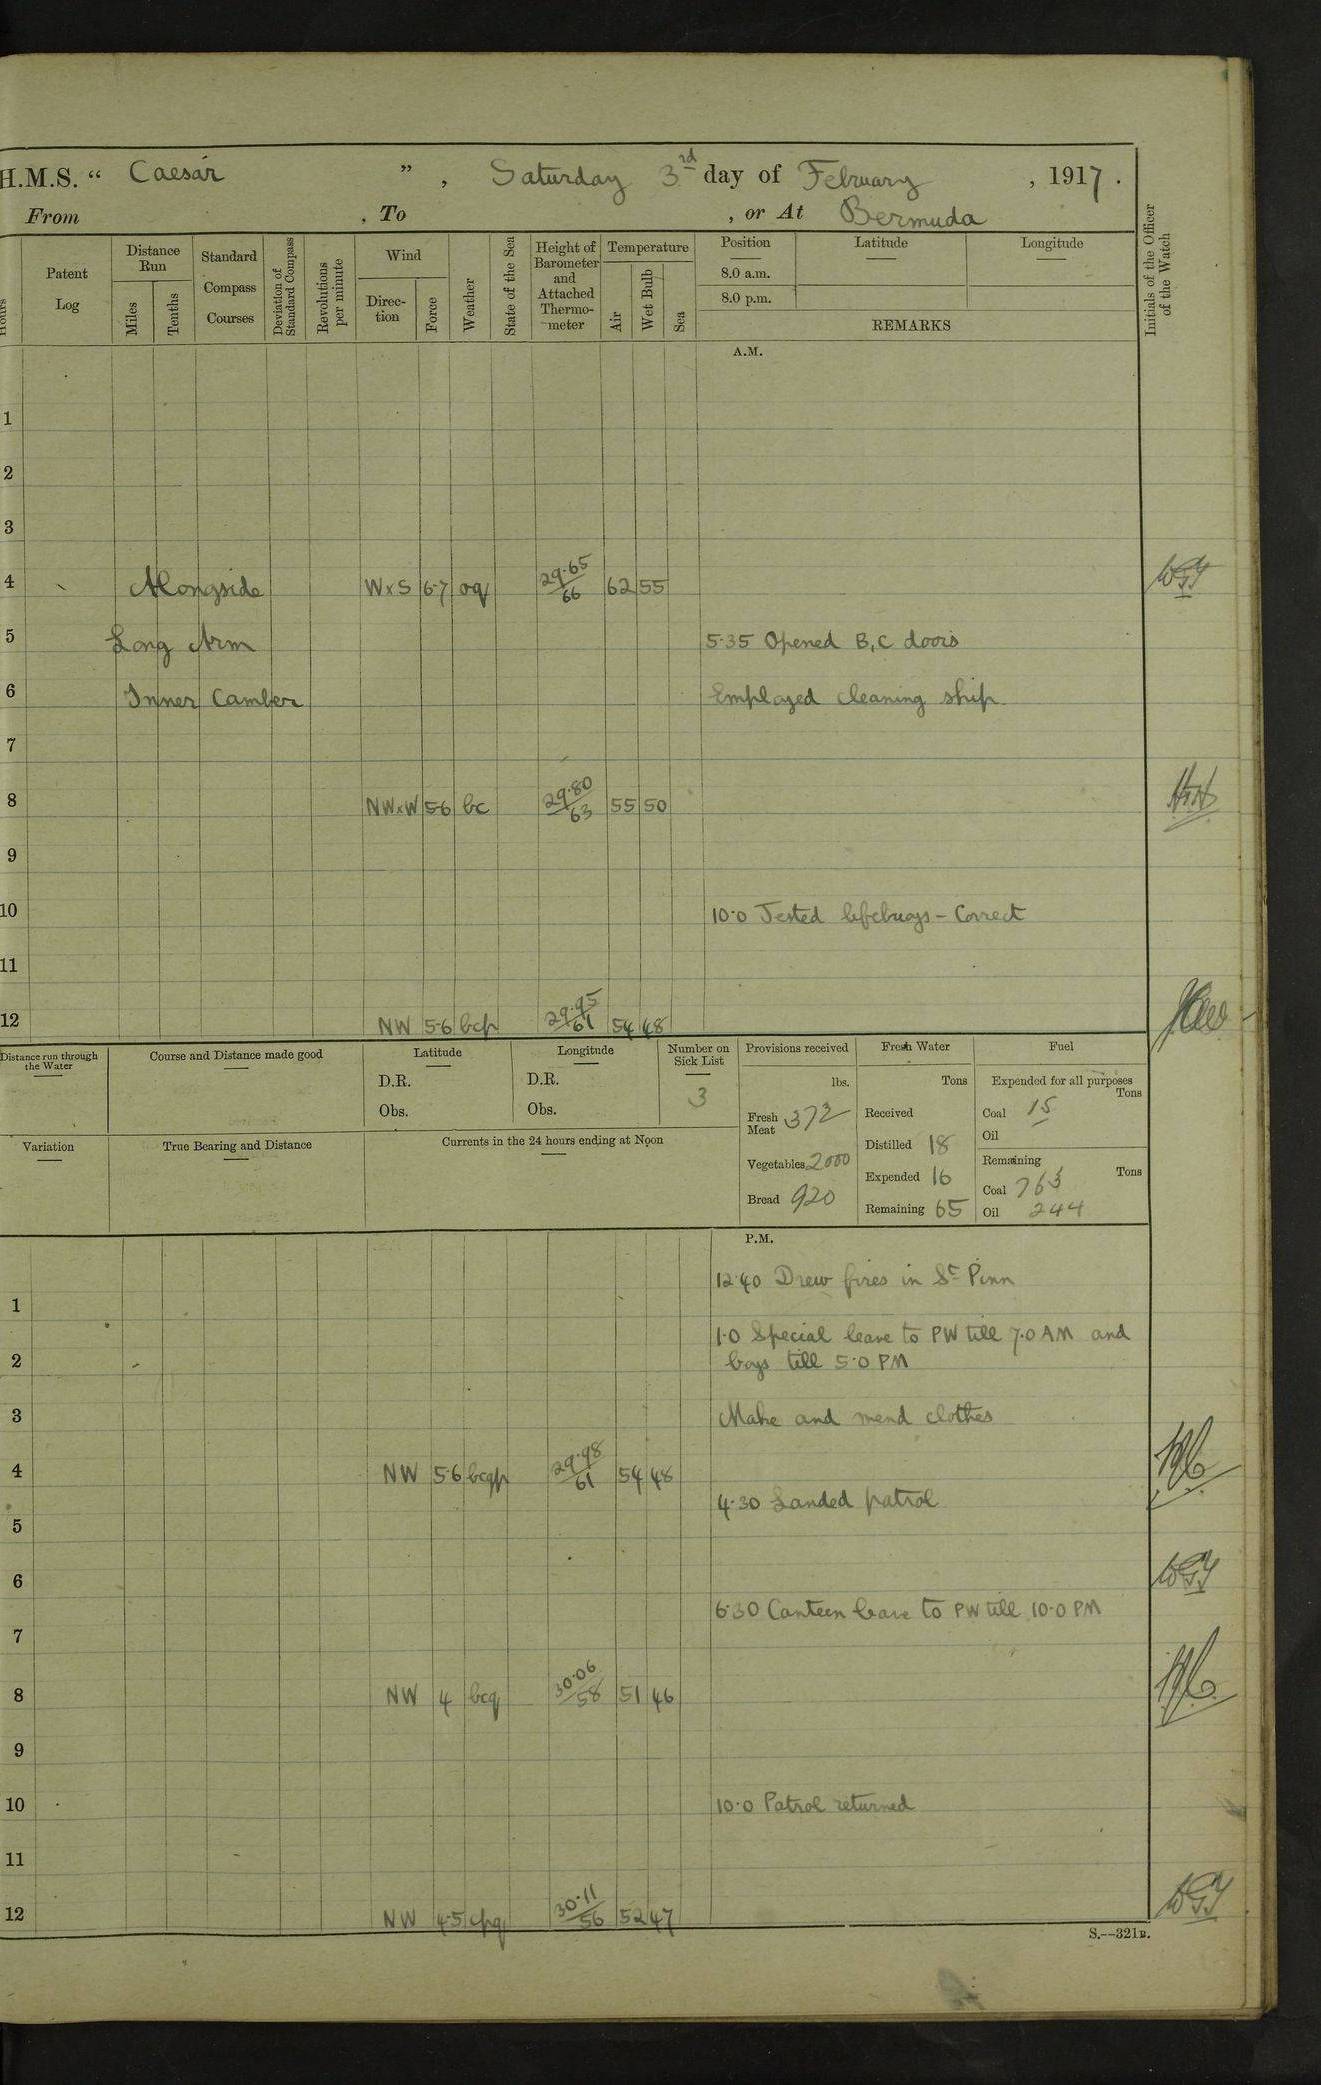 H.M.S. “ Caesar ” , Saturday 3rd day of February , 1917 .
From , To , or At Bermuda
Hours
Patent Log
Distance Run
Miles
Tenths
Standard Compass Courses
Deviation of Standard Compass
Revolutions per minute
Wind
Direction
Force
Weather
State of the Sea
Height of Barometer and Attached Thermometer
Temperature
Air
Wet Bulb
Sea
Position
Latitude
Longitude
8.0 a.m.
8.0 p.m.
REMARKS
Initials of the Officer of the Watch
A.M.
1
2
3
4 Alongside W x S 6-7 oq 29.65/66 62 55
5 Long Arm 5.35 Opened B, C doors
6 Inner Camber Employed cleaning ship
7
8 NWxW 5-6 bc 29.80/63 55 50
9
10 10.0 Tested lifebuoys - Correct
11
12 NW 5-6 bcp 29.95/61 54 48
Distance run through the Water
Course and Distance made good
Latitude
D.R.
Obs.
Longitude
D.R.
Obs.
Number on Sick List
3
Provisions received
lbs.
Fresh Meat 372
Vegetables 2000
Bread 920
Fresh Water
Tons
Received
Distilled 18
Expended 16
Remaining 65
Fuel
Expended for all purposes
Tons
Coal 15
Oil
Remaining
Tons
Coal 763
Oil 244
Variation
True Bearing and Distance
Currents in the 24 hours ending at Noon
P.M.
12.40 Drew fires in St Pinn
1
1.0 Special leave to PW till 7.0 AM and
2 boys till 5.0 PM
3 Make and mend clothes
4 NW 5-6 bcqp 29.98/61 54 48
4.30 Landed patrol
5
6
6.30 Canteen leave to PW till 10.0 PM
7
8 NW 4 bcq 30.06/58 51 46
9
10 10.0 Patrol returned
11
12 NW 4-5 cpq 30.11/56 52 47
S.--321B.